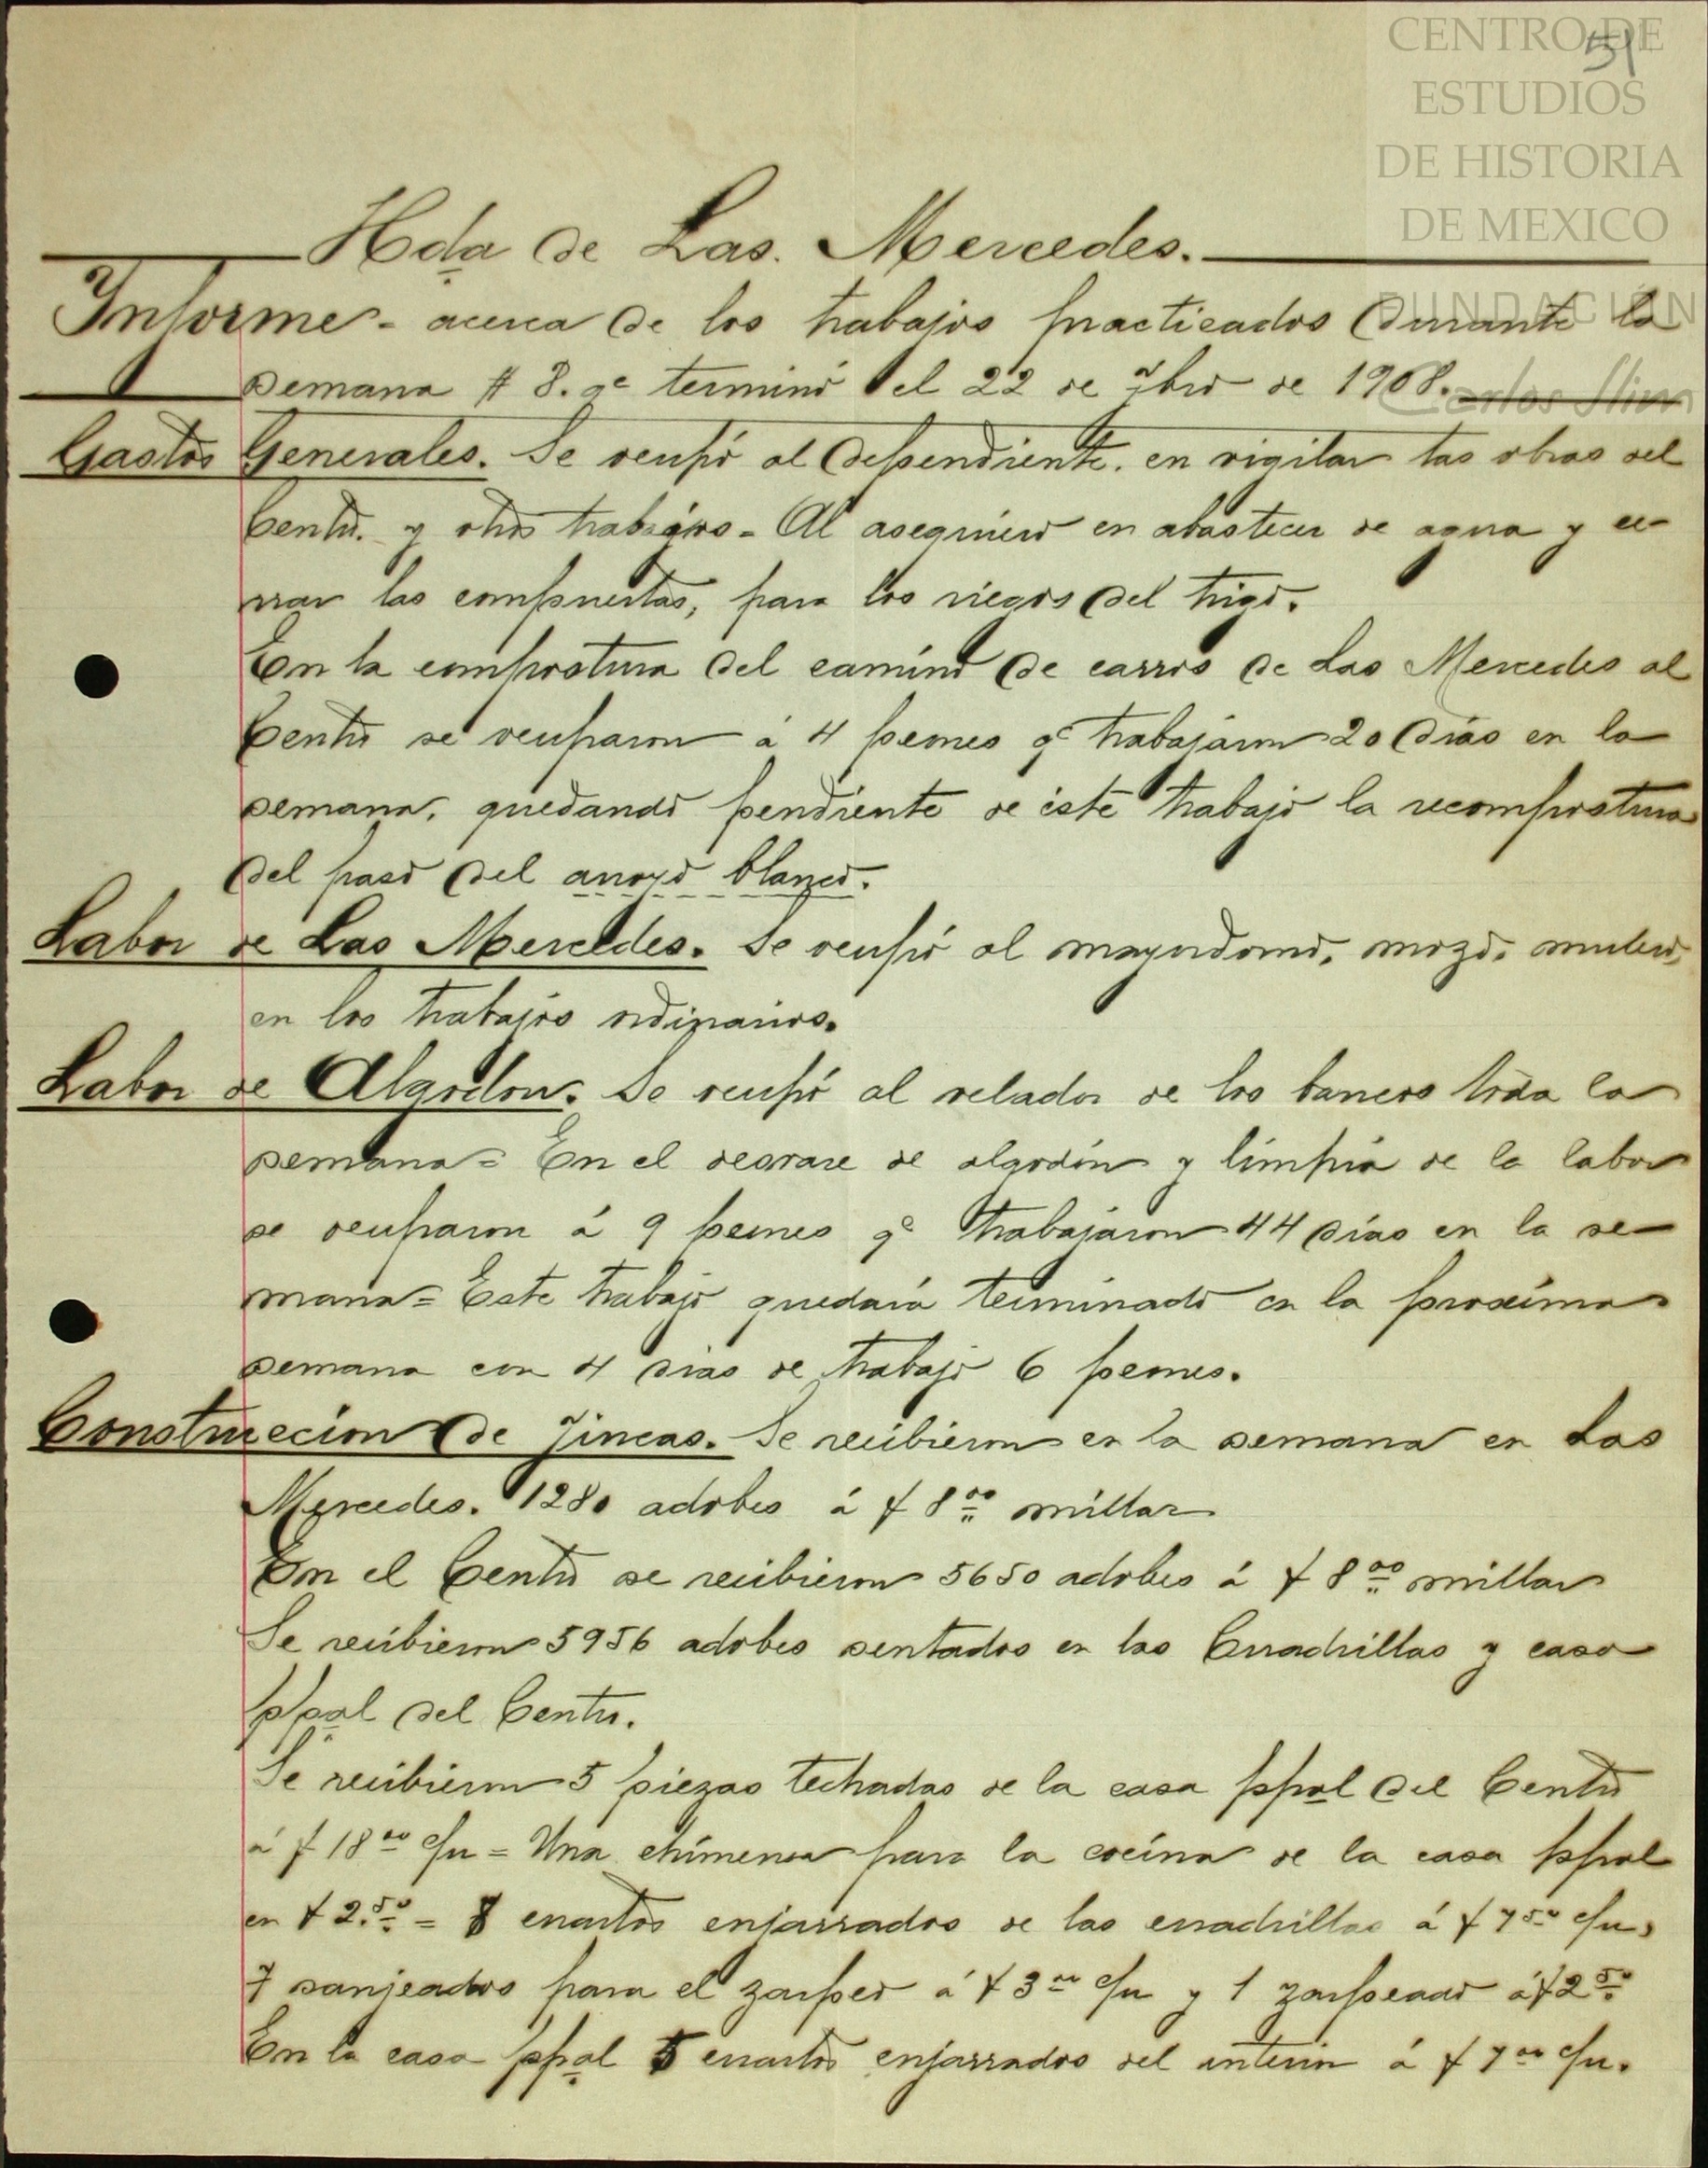 CENTRO DE
ESTUDIOS
DE HISTORIA
DE MEXICO
FUNDACIÓN
Carlos Slim
51
Hda de Las. Mercedes.
Informe - acerca de los trabajos practicados durante la
semana # 8. qe terminó el 22 de 
 de 1908.
Gastos Generales. Se ocupó al dependiente. en vigilar las obras del
Centro. y otros trabajos = Al asequiero en abastecer de agua y ce-
rrar las compuertas, para los riegos del trigo.
En la compostura del camino de carros de Las Mercedes al
Centro se ocuparon á 4 peones qe trabajaron 20 días en la
semana, quedando pendiente de éste trabajo la recompostura
del paso del arroyo blanco.
Labor de Las Mercedes. Se ocupó al mayordomo, mozo, mulero,
en los trabajos ordinarios.
Labor de Algodon. Se ocupó al velador de los bancos toda la
semana = En el desrare de algodón y limpia de la labor
se ocuparon á 9 peones qe trabajaron 44 días en la se-
mana = Este trabajo quedará terminado en la proxima
semana con 4 dias de trabajo 6 peones.
Construccion de fincas. Se recibieron en la semana en Las
Mercedes. 1280 adobes á $ 8.00 millar
En el Centro se recibieron 5650 adobes á $ 8.00 millar
Se recibieron 5956 adobes sentados en las Cuadrillas y casa
ppal del Centro.
Se recibieron 5 piezas techadas de la casa ppal del Centro
á $ 18.00 c/u = Una chimenea para la cocina de la casa ppal
en $ 2.50 = 8 cuartos enjarrados de las cuadrillas á $ 7.50 c/u,
7 sanjeados para el zarpeo á $ 3.00 c/u y 1 zarpeado á $ 2.50
En la casa ppal 5 cuartos enjarrados del interior á $ 7.00 c/u.